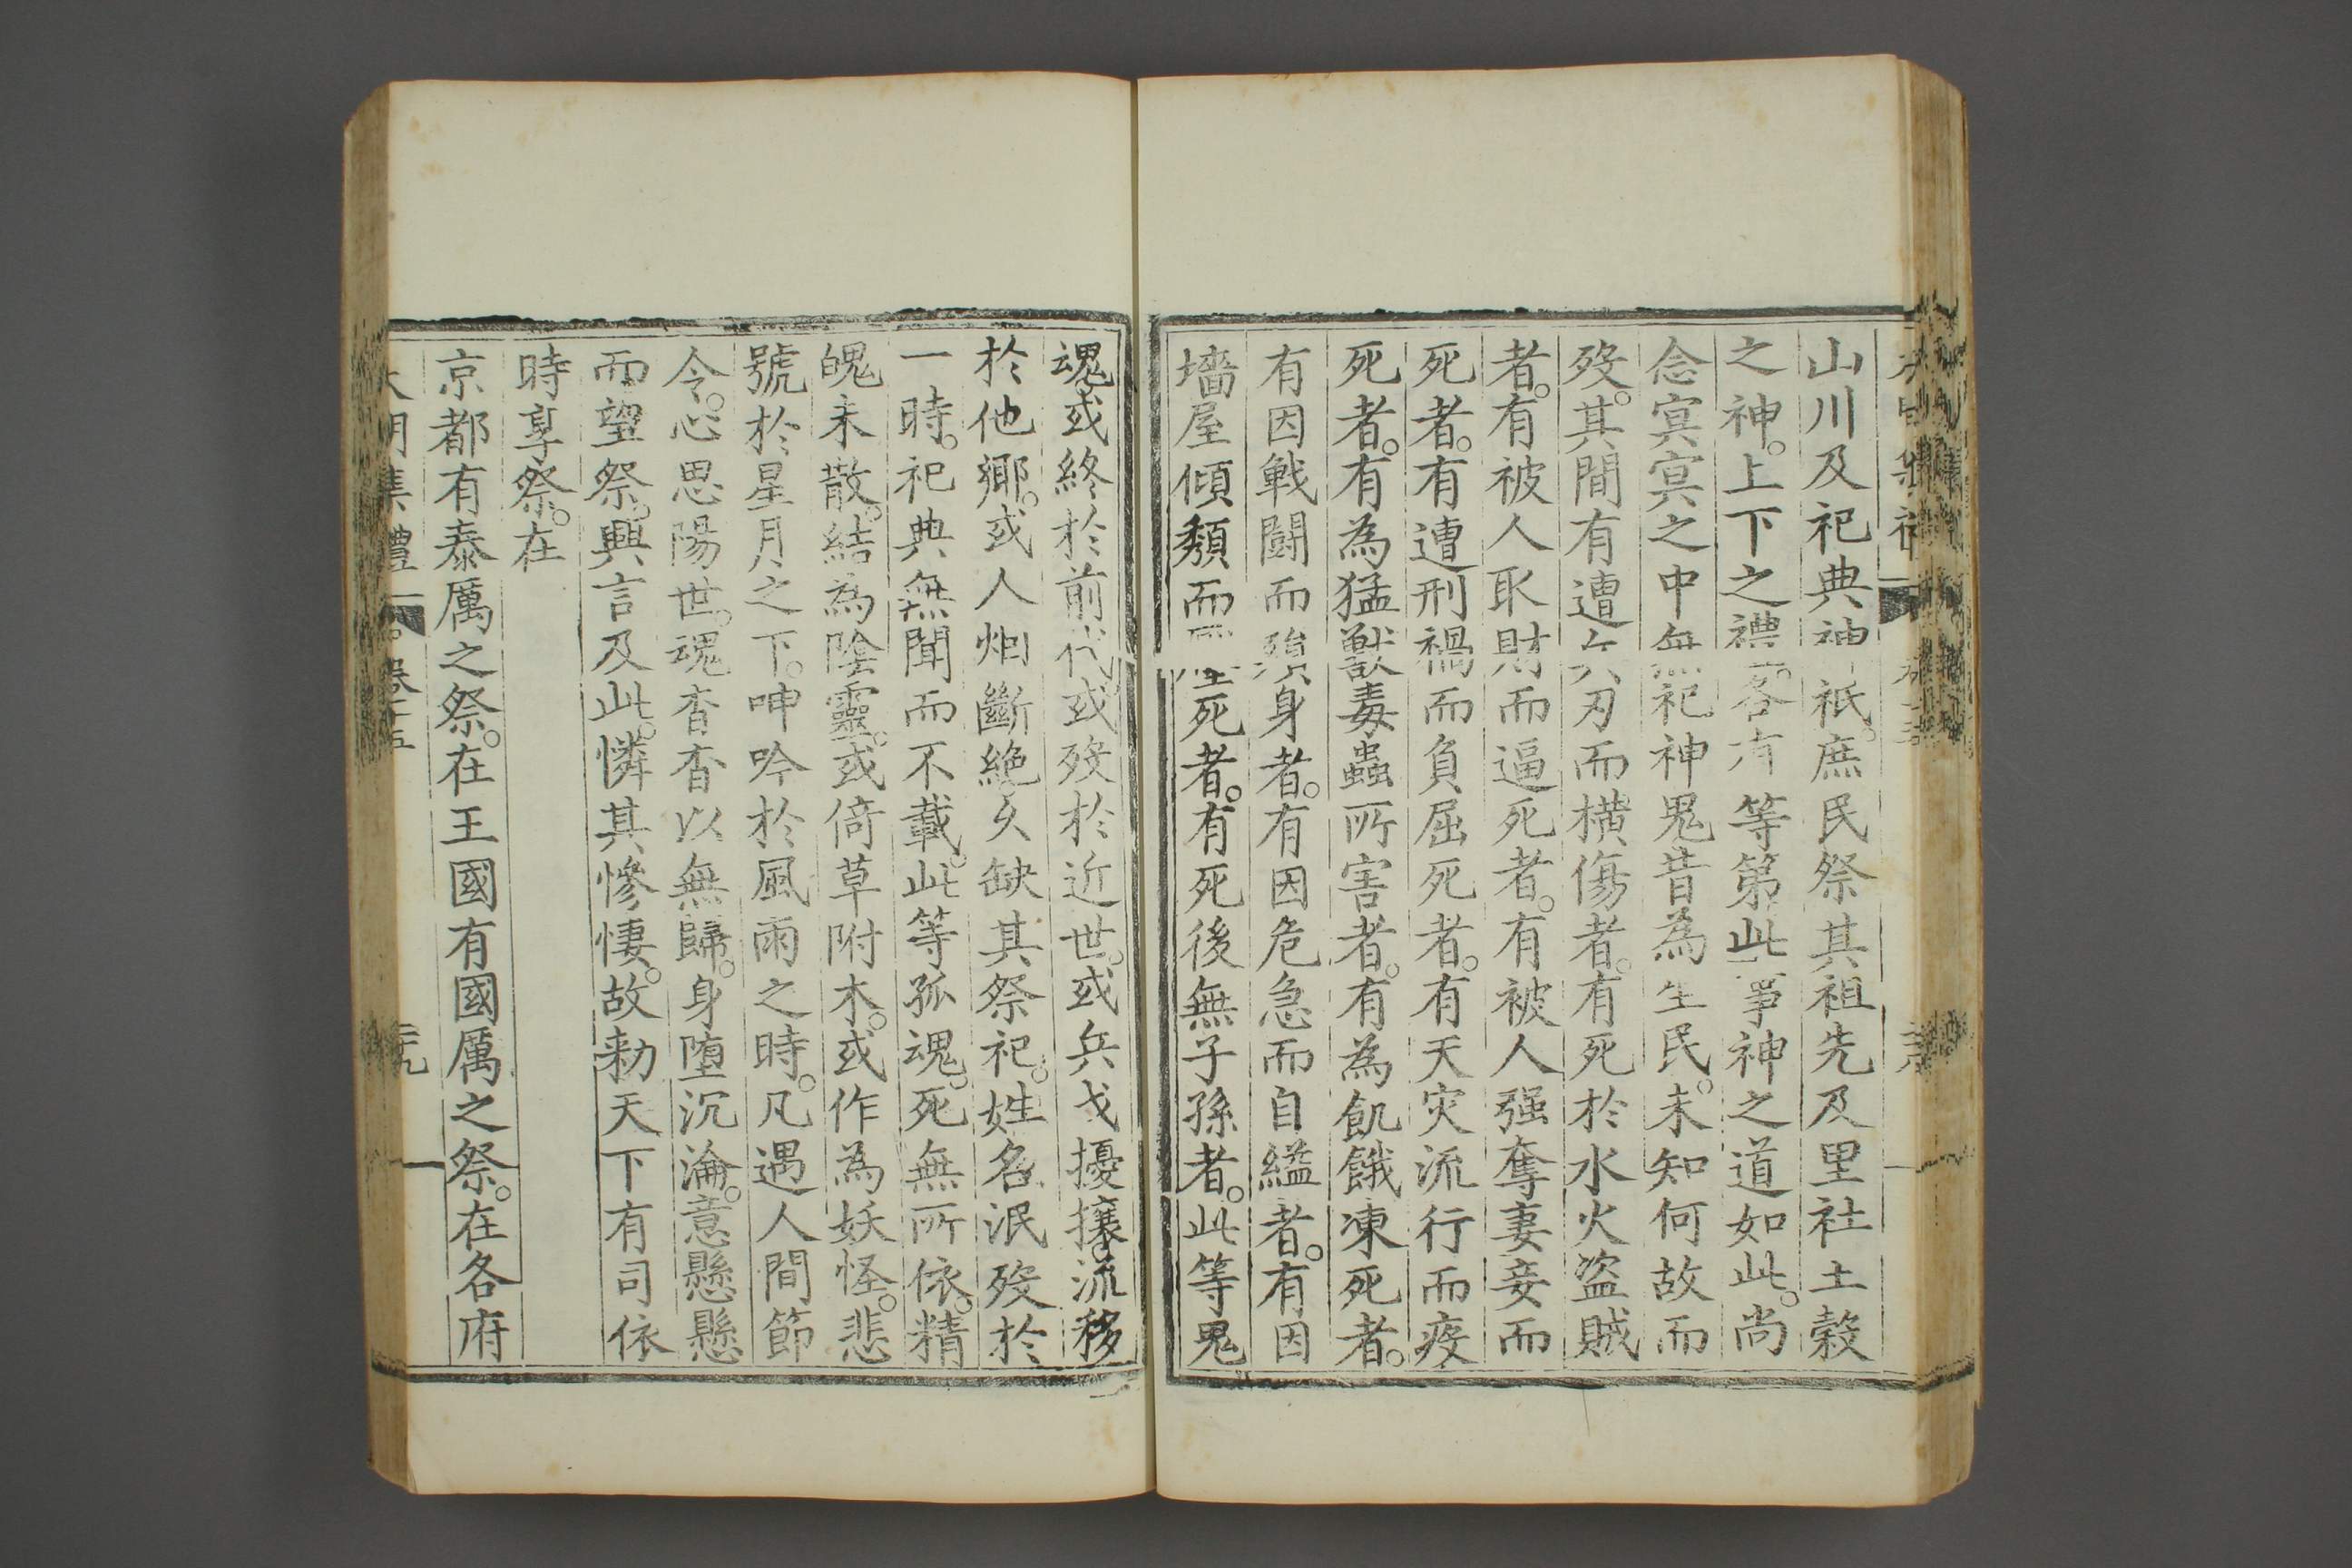 山川及祀典神祇。庶民祭其祖先及里社土糓
之神。上下之禮。各有等第此事神之道如此。尚
念冥冥之中無祀神鬼昔為生民。未知何故而
歿。其間有遭兵刃而橫傷者。有死於水火盗賊
者。有被人取財而逼死者。有被人强奪妻妾而
死者。有遭刑禍而負屈死者。有天灾流行而疫
死者。有為猛獸毒蟲所害者。有為飢餓凍死者。
有因戰鬪而殞身者。有因危急而自縊者。有因
墻屋傾頽而壓死者。有死後無子孫者。此等鬼
魂或終於前代。或歿於近世。或兵戈擾攘。流移
於他鄉。或人烟斷絶久缺其祭祀。姓名泯歿於
一時。祀典無聞而不載。此等孤魂。死無所依。精
魄未散。結為陰靈。或倚草附木。或作為妖怪。悲
號於星月之下。呻吟於風雨之時。凡遇人間節
令。心思陽世。魂杳杳以無歸。身堕沉淪。意懸懸
而望祭。興言及此。憐其慘悽。故勑天下有司依
時享祭。在
京都有泰厲之祭。在王國有國厲之祭。在各府
大明集禮 卷十五 二九